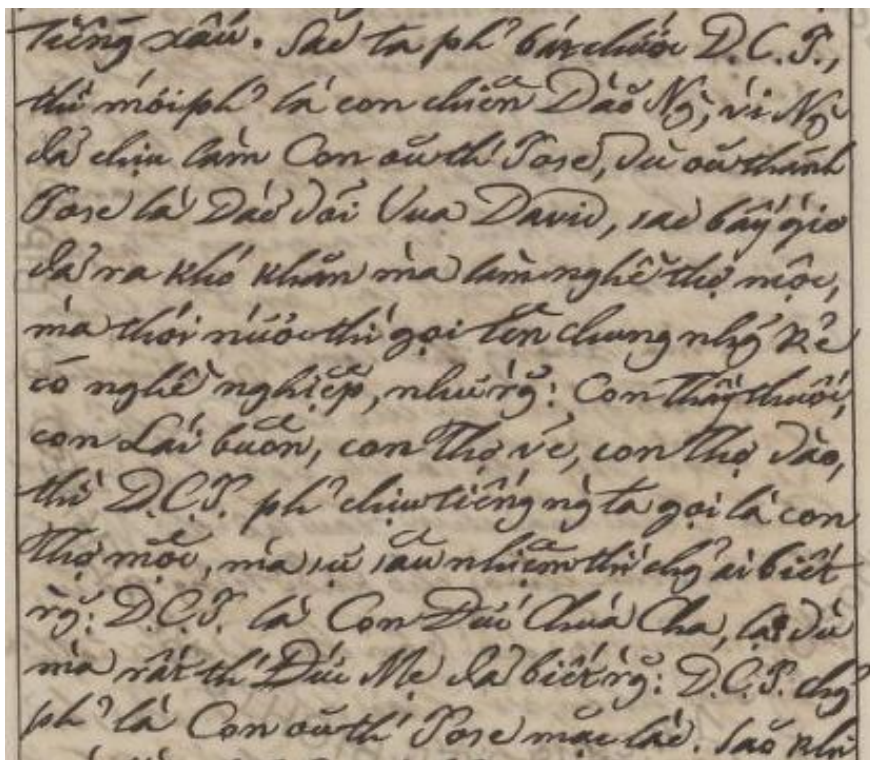 tiếng xấu. Sau ta phˀ bắt chước D.C.J.,
thì mới phˀ là con chiên Đào Ng̃, vì Ng̃
đã chịu làm Con oũ thˊ Jose, dù oũ thánh
Jose là Dào dõi Vua David, sau bây giờ
đã ra khó khăn mà làm nghề thợ mộc,
mà thói nước thì gọi tên chung nhữ̃ kẻ
có nghề nghiệp, như rằ̃: Con thầy thuốc,
con Lái buôn, con Thợ vẽ, con thợ đào,
thì D.C.J. phˀ chịu tiếng ng̀ ta gọi là con
Thợ mộc, mà sự sâu nhiệm thì chg̃ ai biết
rg̃: D.C.J. là Con Đức Chúa Cha, lại dù
mà rất thˊ Đức Mẹ đã biết rg̃: D.C.J. chg̃
phˀ là Con oũ thˊ Jose mặc lào. Sau khi